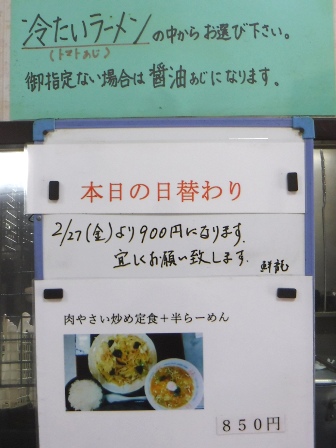 冷たいラーメンの中からお選び下さい。
(トマトあじ)
御指定ない場合は醤油あじになります。
本日の日替わり
2/27(金)より900円になります。
宜しくお願い致します。
肉やさい炒め定食+半らーめん
850円